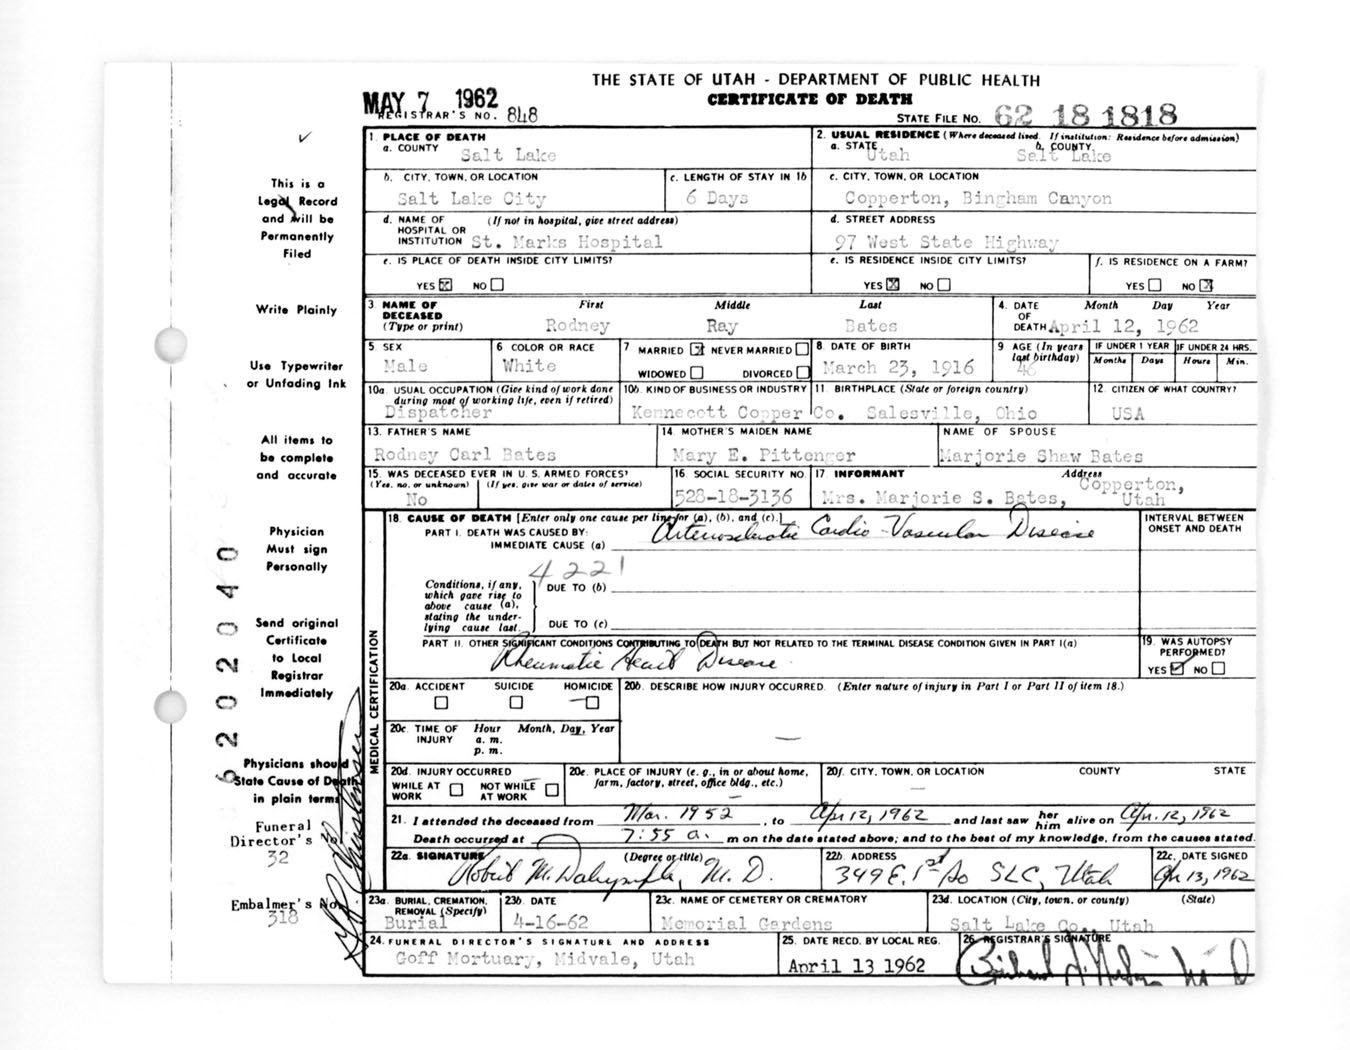 THE STATE OF UTAH - DEPARTMENT OF PUBLIC HEALTH
CERTIFICATE OF DEATH
MAY 7 1962
REGISTRAR'S NO. 848
STATE FILE NO. 62 18 1818
1. PLACE OF DEATH
a. COUNTY Salt Lake
2. USUAL RESIDENCE (Where deceased lived. If institution: Residence before admission)
a. STATE Utah b. COUNTY Salt Lake
b. CITY, TOWN, OR LOCATION Salt Lake City
c. LENGTH OF STAY IN 1b 6 Days
c. CITY, TOWN, OR LOCATION Copperton, Bingham Canyon
d. NAME OF HOSPITAL OR INSTITUTION (If not in hospital, give street address) St. Marks Hospital
d. STREET ADDRESS 97 West State Highway
e. IS PLACE OF DEATH INSIDE CITY LIMITS?
YES ☒ NO ☐
e. IS RESIDENCE INSIDE CITY LIMITS?
YES ☒ NO ☐
f. IS RESIDENCE ON A FARM?
YES ☐ NO ☒
3. NAME OF DECEASED (Type or print) First Middle Last
Rodney Ray Bates
4. DATE OF DEATH Month Day Year
April 12, 1962
5. SEX Male
6. COLOR OR RACE White
7 MARRIED ☒ NEVER MARRIED ☐
WIDOWED ☐ DIVORCED ☐
8. DATE OF BIRTH March 23, 1916
9 AGE (In years last birthday) 46
IF UNDER 1 YEAR Months Days
IF UNDER 24 HRS. Hours Min.
10a. USUAL OCCUPATION (Give kind of work done during most of working life, even if retired)
Dispatcher
10b. KIND OF BUSINESS OR INDUSTRY
Kennecott Copper Co.
11. BIRTHPLACE (State or foreign country)
Salesville, Ohio
12. CITIZEN OF WHAT COUNTRY?
USA
13. FATHER'S NAME
Rodney Carl Bates
14 MOTHER'S MAIDEN NAME
Mary E. Pittenger
NAME OF SPOUSE
Marjorie Shaw Bates
15. WAS DECEASED EVER IN U. S. ARMED FORCES?
(Yes, no. or unknown) (If yes, give war or dates of service)
No
16. SOCIAL SECURITY NO.
528-18-3136
17. INFORMANT Address
Mrs. Marjorie S. Bates, Copperton, Utah
MEDICAL CERTIFICATION
18. CAUSE OF DEATH [Enter only one cause per line for (a), (b), and (c).]
PART I. DEATH WAS CAUSED BY:
IMMEDIATE CAUSE (a) Arteriosclerotic Cardio-Vascular Disease
4221
Conditions, if any, which gave rise to above cause (a), stating the underlying cause last.
DUE TO (b)
DUE TO (c)
INTERVAL BETWEEN ONSET AND DEATH
PART II. OTHER SIGNIFICANT CONDITIONS CONTRIBUTING TO DEATH BUT NOT RELATED TO THE TERMINAL DISEASE CONDITION GIVEN IN PART I(a)
Rheumatic Heart Disease
19. WAS AUTOPSY PERFORMED?
YES ☑ NO ☐
20a. ACCIDENT SUICIDE HOMICIDE
20b. DESCRIBE HOW INJURY OCCURRED. (Enter nature of injury in Part I or Part II of item 18.)
20c. TIME OF INJURY Hour Month, Day, Year
a. m.
p. m.
20d. INJURY OCCURRED
WHILE AT WORK ☐ NOT WHILE AT WORK ☐
20e. PLACE OF INJURY (e. g., in or about home, farm, factory, street, office bldg., etc.)
20f. CITY, TOWN, OR LOCATION COUNTY STATE
21. I attended the deceased from Mar. 1952, to Apr 12, 1962 and last saw her him alive on Apr. 12, 1962
Death occurred at 7:55 a. m on the date stated above; and to the best of my knowledge, from the causes stated.
22a. SIGNATURE (Degree or title)
Robert M. Dalrymple, M. D.
22b. ADDRESS
349 E. 1st So SLC, Utah
22c. DATE SIGNED
Apr 13, 1962
23a. BURIAL, CREMATION, REMOVAL (Specify)
Burial
23b. DATE
4-16-62
23c. NAME OF CEMETERY OR CREMATORY
Memorial Gardens
23d. LOCATION (City, town, or county) (State)
Salt Lake Co., Utah
24. FUNERAL DIRECTOR'S SIGNATURE AND ADDRESS
Goff Mortuary, Midvale, Utah
25. DATE RECD. BY LOCAL REG.
April 13 1962
26. REGISTRAR'S SIGNATURE
This is a
Legal Record
and will be
Permanently
Filed
Write Plainly
Use Typewriter
or Unfading Ink
All items to
be complete
and accurate
Physician
Must sign
Personally
Send original
Certificate
to Local
Registrar
Immediately
Physicians should
State Cause of Death
in plain terms
Funeral
Director's No
32
Embalmer's No.
318
6202040